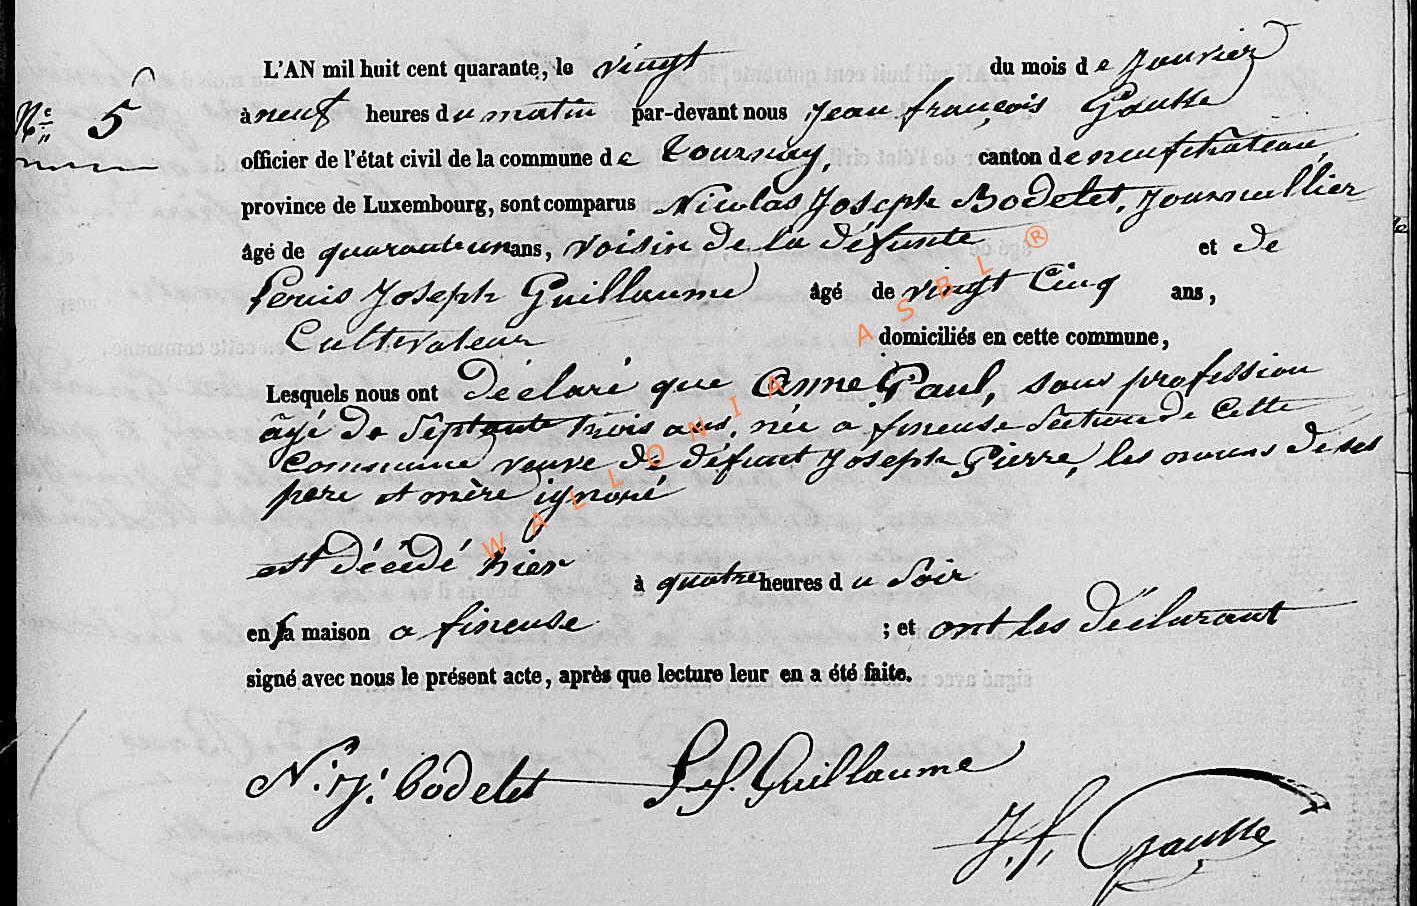 L'AN mil huit cent quarante, le vingt du mois de Janvier
N.º 5
à neuf heures du matin par-devant nous Jean françois Gausse
officier de l'état civil de la commune de tournay, canton de neufchateau,
province de Luxembourg, sont comparus Nicolas Joseph Bodelet, Journallier
âgé de quarante un ans, voisin de la défunte et de
Louis Joseph Guillaume âgé de vingt Cinq ans,
Cultivateur domiciliés en cette commune,
Lesquels nous ont déclaré que anne Paul, sans profession
âgé de séptante trois ans, née a fineuse Section de Cette
Commune, veuve de défunt Joseph Pierre, les noms de ses
pere et mère ignoré
est décédé hier à quatre heures du Soir
en sa maison a fineuse ; et ont les déclarant
signé avec nous le présent acte, après que lecture leur en a été faite.
N. j. bodelet L. J. Guillaume
J. f. Gausse
WALLONIA ASBL ®